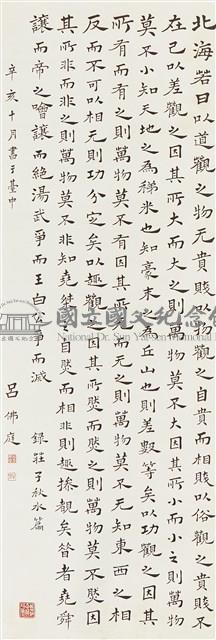 北海若曰以道觀之物无貴賤以物觀之自貴而相賤以俗觀之貴賤不
在己以差觀之因其所大而大之則萬物莫不大因其所小而小之則萬物
莫不小知天地之為稊米也知豪末之為丘山也則差數等矣以功觀之因其
所有而有之則萬物莫不有因其所无而无之則萬物莫不无知東西之相
反而不可以相无則功分定矣以趣觀之因其所然而然之則萬物莫不然因
其所非而非之則萬物莫不非知堯桀之自然而相非則趣操覩矣昔者堯舜
讓而帝之噲讓而絕湯武爭而王白公爭而滅 錄莊子秋水篇
辛亥十月書于臺中 呂佛庭
國立國父紀念館
National Dr. Sun Yat-sen Memorial Hall